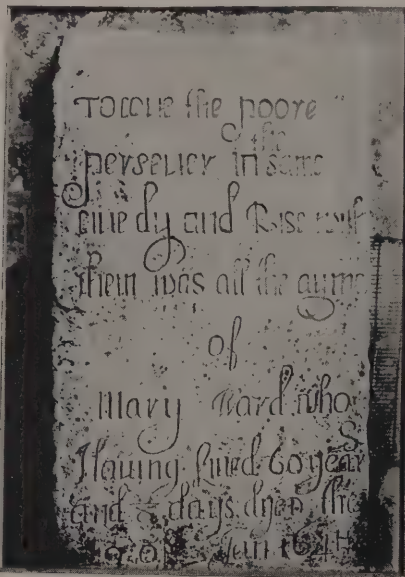 TO LOUE the poore
the
perseuer in same
liue dy and Rise with
them was all the ayme
of
Mary Ward who
Hauing liued 60 year
and days dyed the
of Jan 164